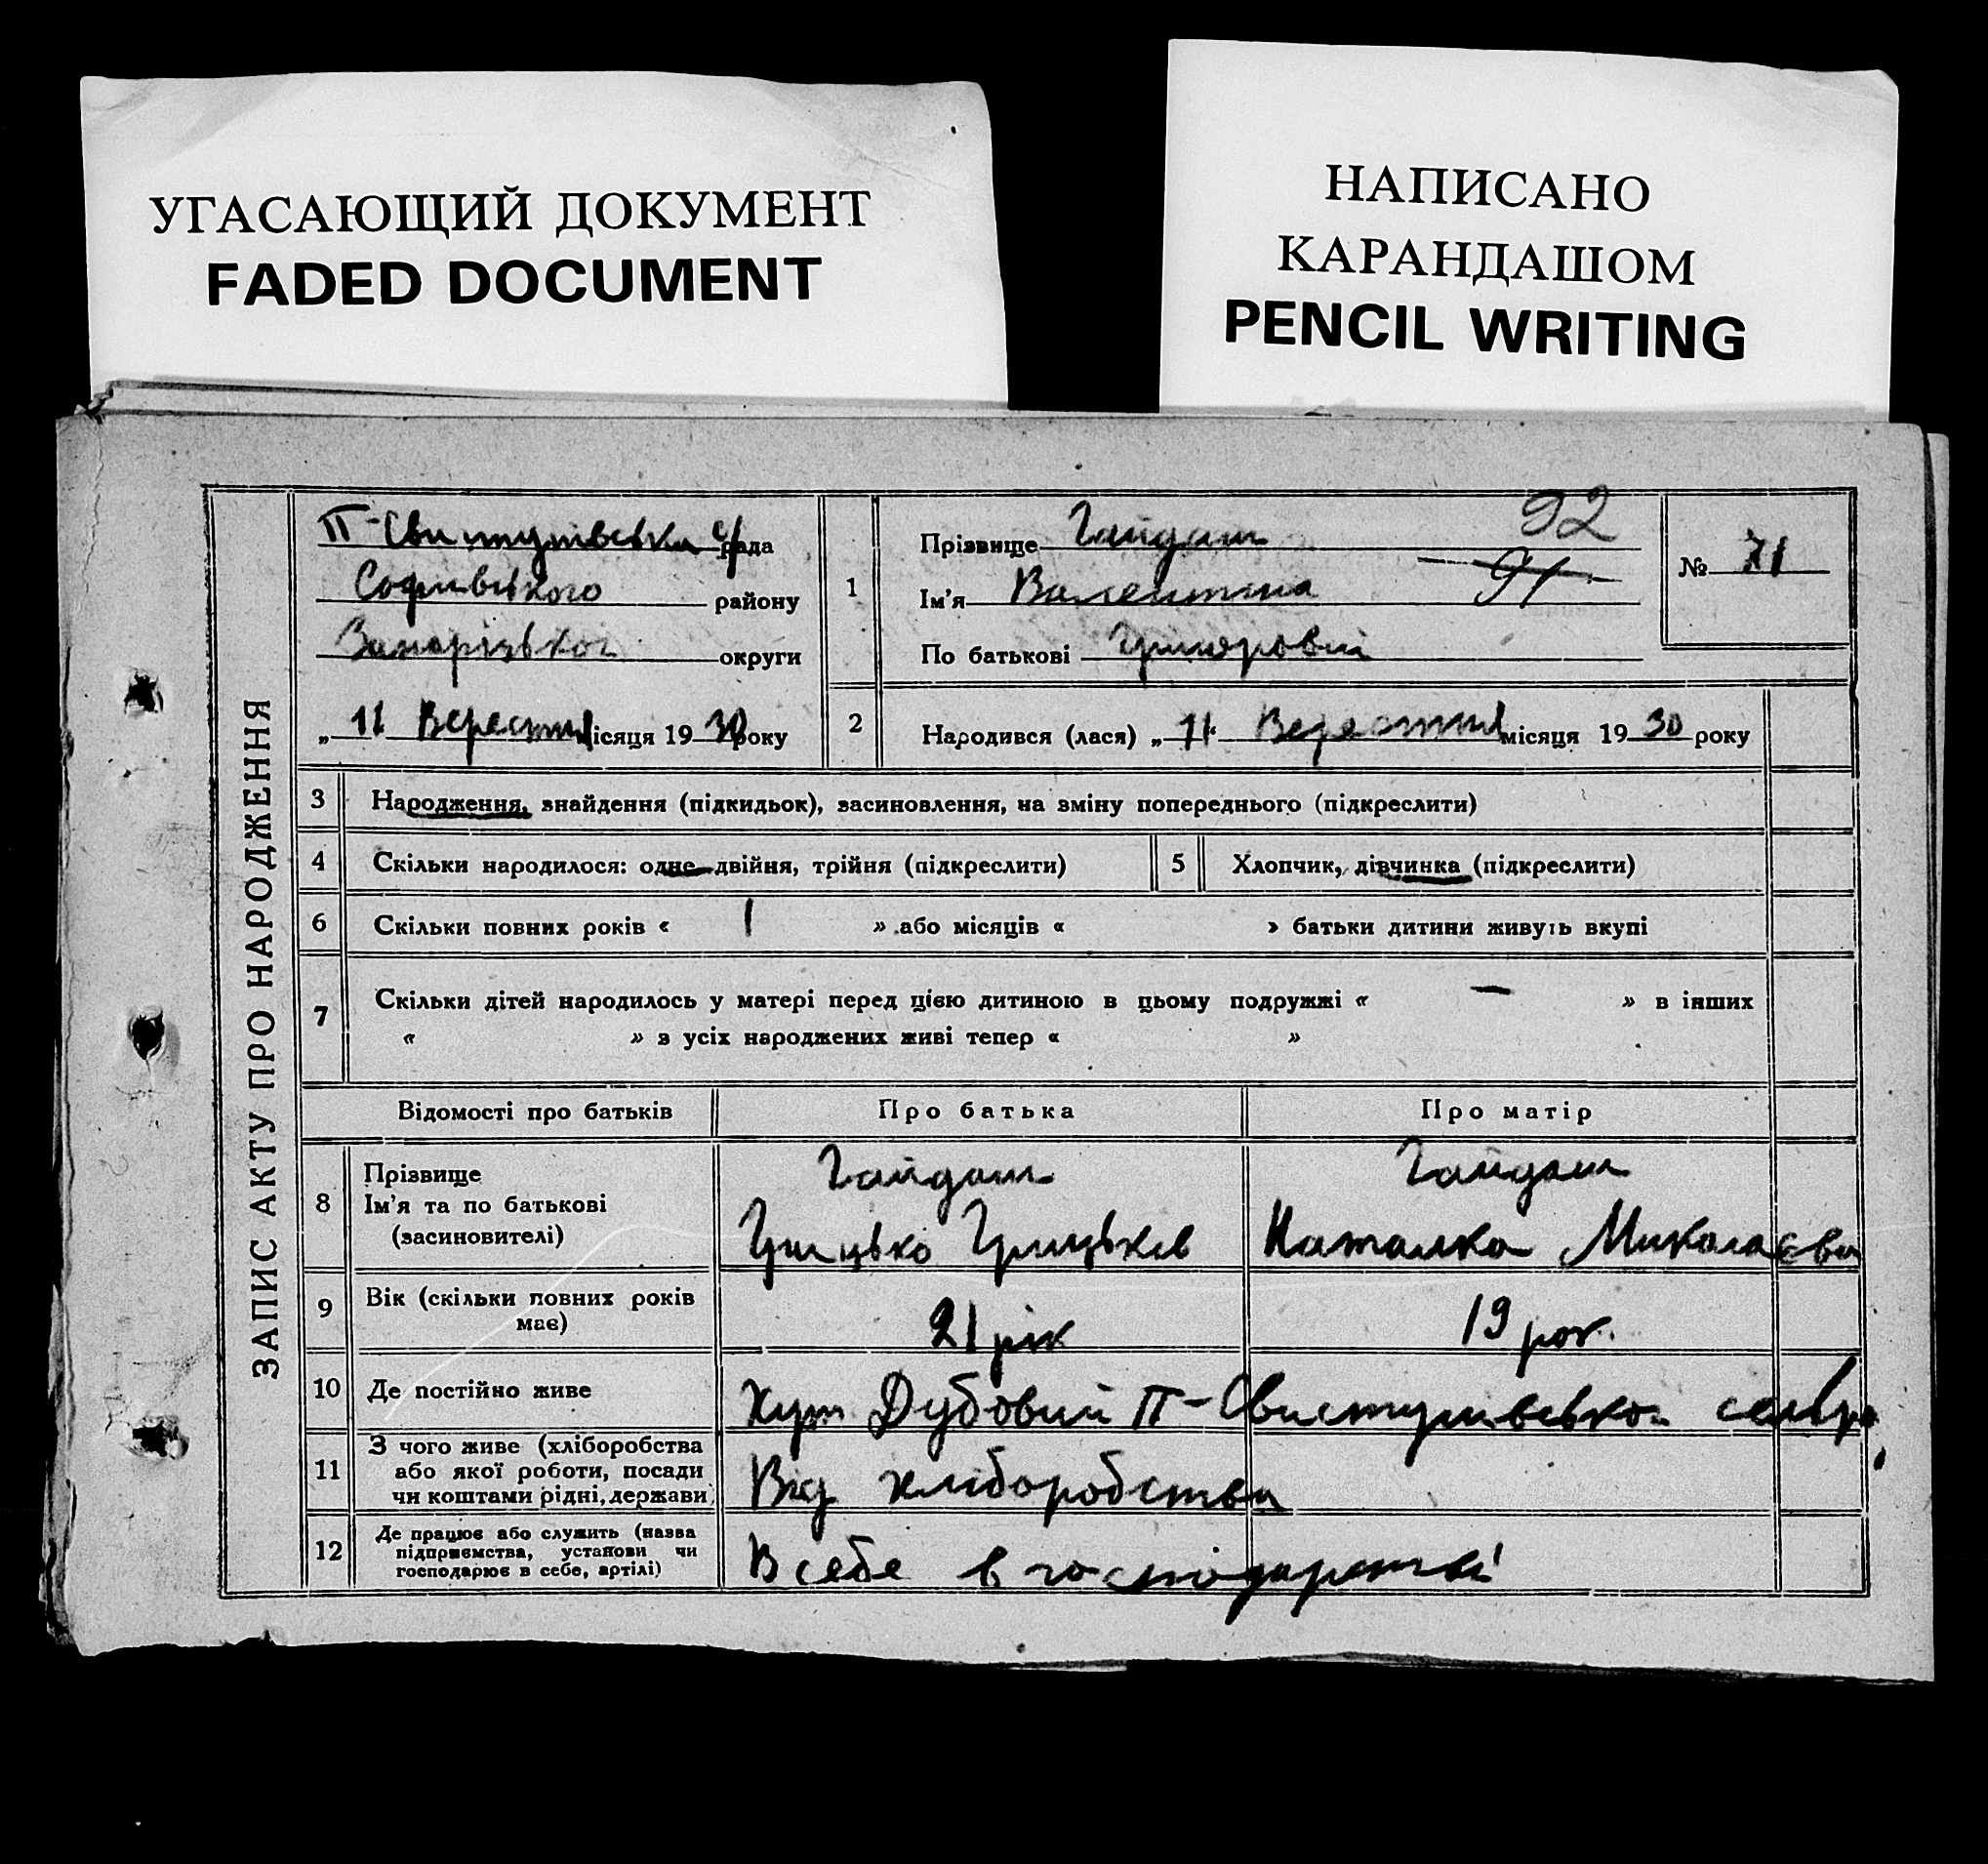 УГАСАЮЩИЙ ДОКУМЕНТ
FADED DOCUMENT
НАПИСАНО
КАРАНДАШОМ
PENCIL WRITING
ЗАПИС АКТУ ПРО НАРОДЖЕННЯ
П-Свистунівська с/рада
Софіівського району
Запорізької округи
„ 11 Вересня місяця 19 30 року
1
Прізвище Гайдаш 92
Ім'я Валентина 91
По батькові Григоровна
№ 71
2 Народився (лася) „ 11 “ Вересня місяця 19 30 року
3 Народження, знайдення (підкидьок), засиновлення, на зміну попереднього (підкреслити)
4 Скільки народилося: одне двійня, трійня (підкреслити) 5 Хлопчик, дівчинка (підкреслити)
6 Скільки повних років « 1 » або місяців « » батьки дитини живуть вкупі
7 Скільки дітей народилось у матері перед цією дитиною в цьому подружжі « — » в інших
« » з усіх народжених живі тепер « »
Відомості про батьків Про батька Про матір
8 Прізвище Гайдаш Гайдаш
Ім'я та по батькові Грицько Грицьків Наталка Миколаєва
(засиновителі)
9 Вік (скільки повних років має) 21 рік 19 рок.
10 Де постійно живе Хут Дубовий П-Свистунівської сельра
11 З чого живе (хліборобства
або якої роботи, посади
чи коштами рідні, держави Від хліборобства
12 Де працює або служить (назва
підприємства, установи чи
господарює в себе, артілі) В себе в господарстві